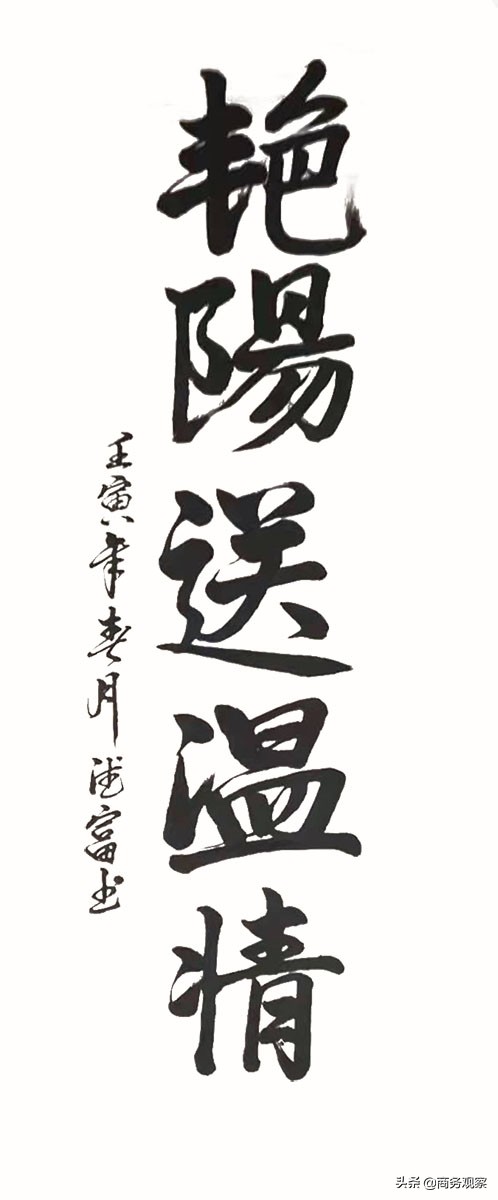 艳陽送温情
壬寅年春月德富书
头条 @商务观察